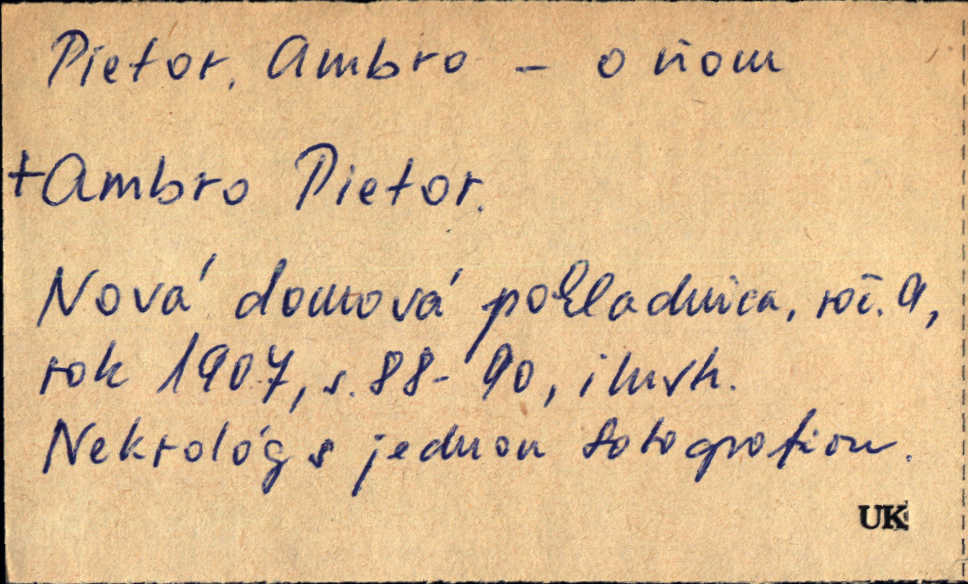 Pietor, Ambro – o ňom
+Ambro Pietor.
Nová domová pokladnica, roč. 9,
rok 1907, s. 88-90, ilustr.
Nekrológ s jednou fotografiou.
UK